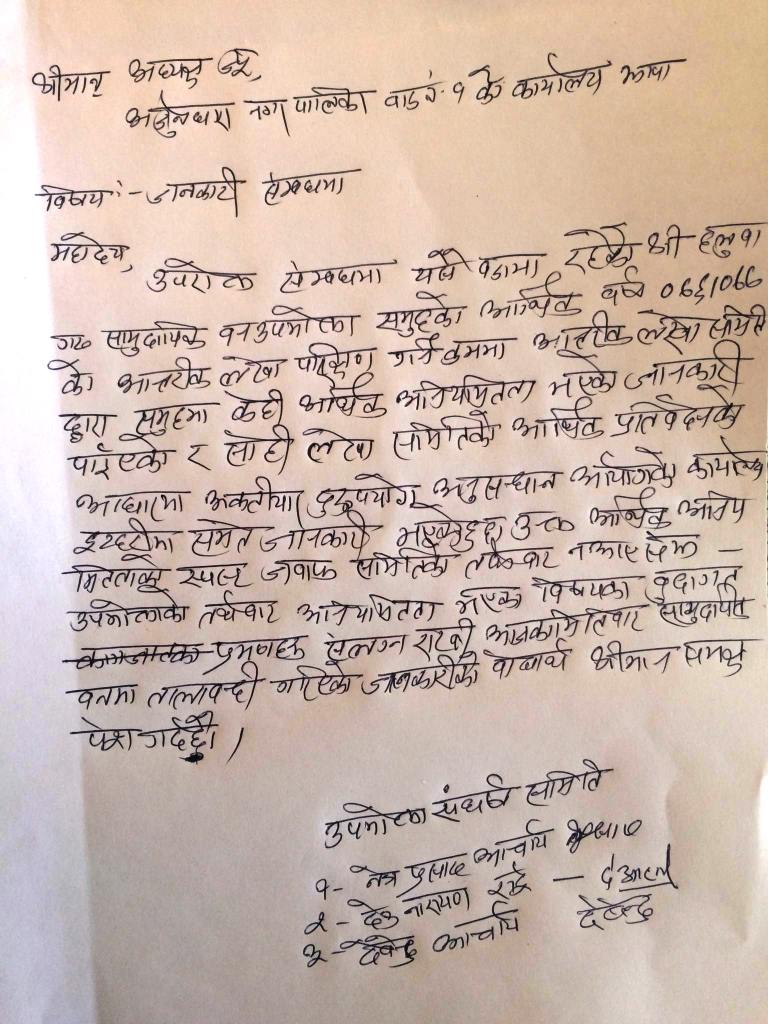 श्रीमान् अध्यक्ष ज्यू,
अर्जुनधारा नगरपालिका वडा नं. १ को कार्यालय झापा
विषय :- जानकारी सम्बन्धमा
महोदय,
उपरोक्त सम्बन्धमा यसै वडामा रहेको श्री हलुवा
गढ सामुदायिक वन उपभोक्ता समुहको आर्थिक वर्ष ०६५/०६६
को आन्तरीक लेखा परिक्षण गर्ने क्रममा आन्तरीक लेखा समिति
द्वारा समुहमा केही आर्थिक अनियमितता भएको जानकारी
पाईएको र सोही लेखा समितिको आर्थिक प्रतिवेदनको
आधारमा अख्तीयार दुरुपयोग अनुसन्धान आयोगको कार्यालय
इटहरीमा समेत जानकारी भएको हुदा उक्त आर्थिक अनिय
मितताको स्पष्ट जवाफ समितिको तर्फबाट नआए सम्म –
उपभोक्ताको तर्फबाट अनियमितता भएका विषयका
प्रमाणहरु संलग्न राखी आजका मितिबाट सामुदायिक
वनमा तालाबन्दी गरिएको जानकारीको बोधार्थ श्रीमान समक्ष
पेश गर्दछौ ।
उपभोक्ता संघर्ष समिति
१- नेत्र प्रसाद आचार्य
२- देउ नारायण –
३- देवेन्द्र आचार्य देवेन्द्र